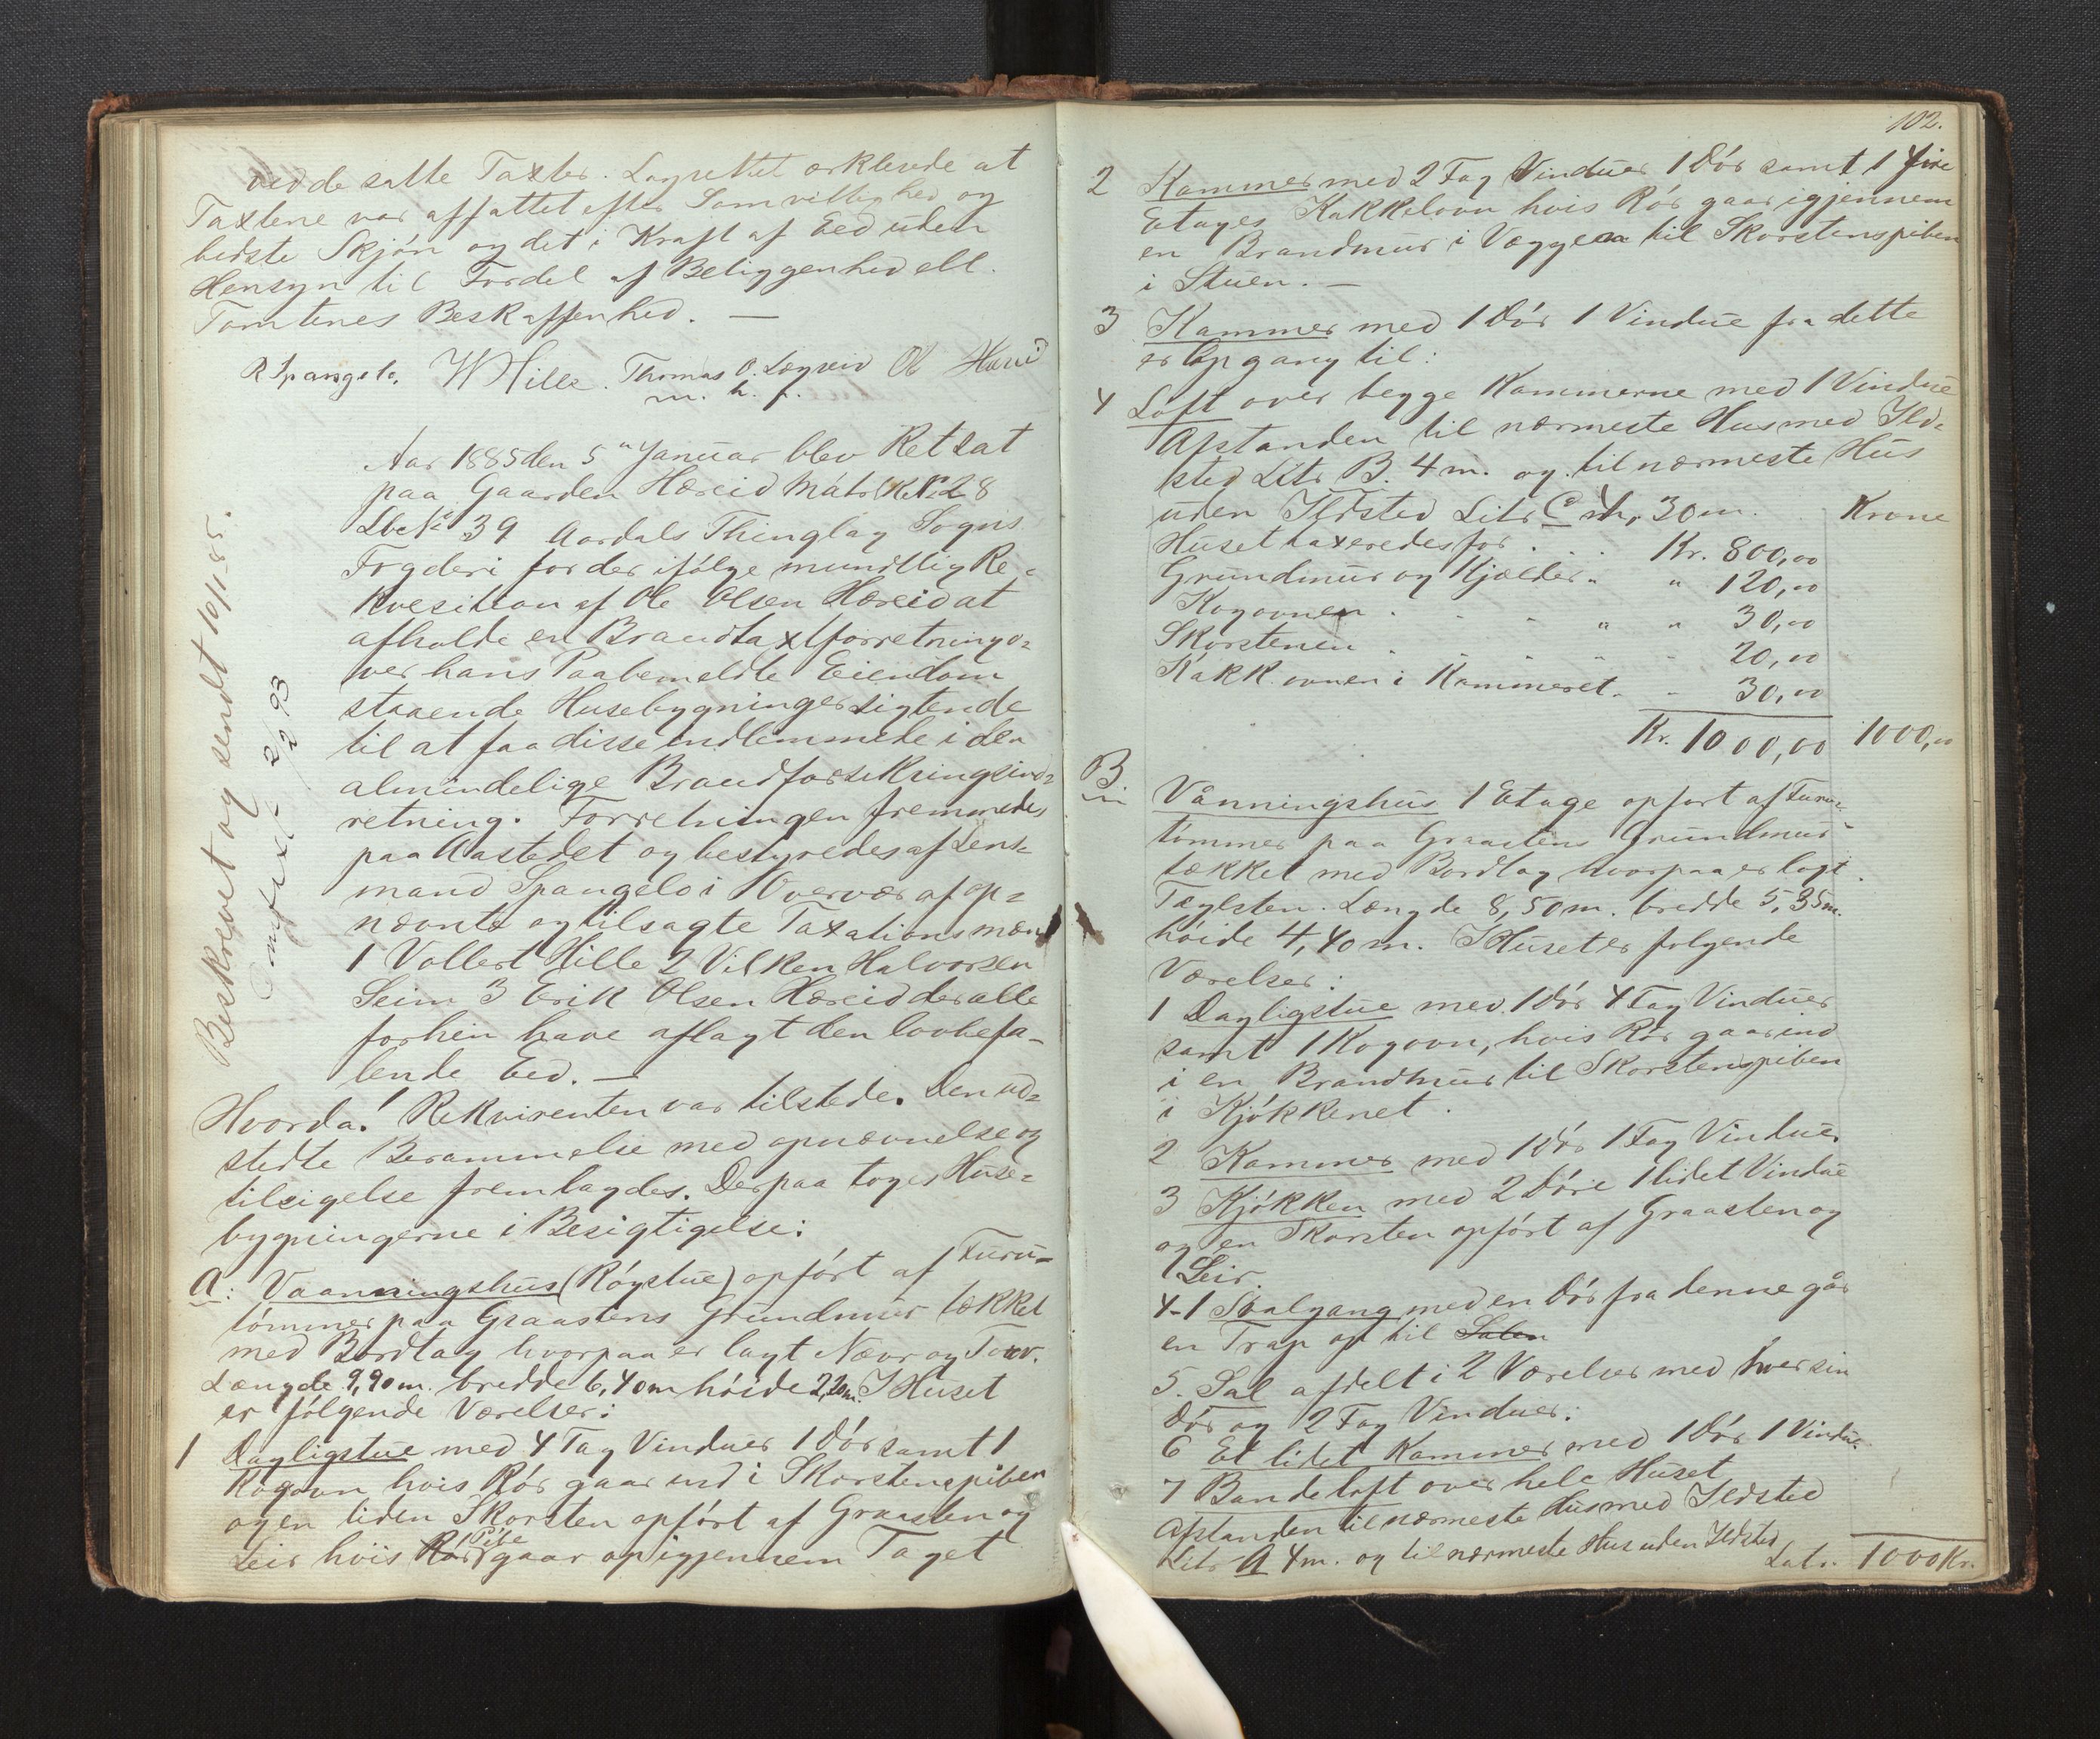 ved de satte Taxter. Lagrettet erklerede at
Taxtene var affattet efter Samvittighed og
bedste Skjøn og det i Kraft af Eed uden
Hensyn til Fordel af Beliggenhed ell.
Tomtenes Beskaffenhed. —
R Spangelo. W Hille. Thomas O. Lægreid Ol Hæreid
m. h. p.
Aar 1885 den 5" Januar blev Ret sat
paa Gaarden Hæreid Matr No 28
Lbe No 39 Aardals Thinglag Sogns
Fogderi for der ifølge mundtlig Re-
kvesition af Ole Olsen Hæreid at
afholde en Brandtaxtforretning o-
ver hans Paabemeldte Eiendom
staaende Husebygninger sigtende
til at faa disse indlemmede i den
almindelige Brandforsikringsind-
retning. Forretningen fremmedes
paa Aastedet og bestyredes af Lens-
mand Spangelo i Overvær af op-
nævnte og tilsagte Taxationsmænd
1 Vollert Hille 2 Vilken Halvorsen
Seim 3 Erik Olsen Hæreid der alle
forhen have aflagt den lovbefa-
lende Eed. —
Hvorda! Rekvirenten var tilstede. Den ud-
stedte Berammelse med opnævnelse og
tilsigelse fremlagdes. Derpaa toges Huse-
bygningerne i Besigtigelse:
A: Vaanningshus (Røgstue) opført af Furu-
tømmer paa Graastens Grundmur tækket
med Bordtag hvorpaa er lagt Næver og Torv.
Længde 9,90m. bredde 6,40m høide 2,20m. I Huset
er følgende Værelser:
1 Dagligstue med 4 Fag Vinduer 1 Dør samt 1
Kogovn hvis Rør gaar ind i Skorstenspiben
og en liden Skorsten opført af Graasten og
Leir hvis Rør Pibe gaar op igjennem Taget
Beskrevet og sendt 16/1-85.
Omtaxt 2/2 93
102.
2 Kammer med 2 Fag Vinduer 1 Dør samt 1 fire
Etages Kakkelovn hvis Rør gaar igjennem
en Brandmur i Væggen til Skorstenspiben
i Stuen. —
3 Kammer med 1 Dør 1 Vindue fra dette
er Opgang til:
4 Loft over begge Kammerne med 1 Vindue
Afstanden til nærmeste Hus med Ild-
sted Litr B. 4 m. og til nærmeste Hus
uden Ildsted Litr C 4, 30 m. Krone
Huset taxeredes for . . . Kr. 800,00
Grundmur og Kjælder " " 120,00
Kogovnen . . . " " 30,00
Skorstenen . . . 20,00
Kakk.ovnen i Kammeret. - 30,00
Kr. 1000,00 1000,00
B. Vånningshus 1 Etage opført af Furu-
tømmer paa Graastens Grundmur
tækket med Bordtag hvorpaa er lagt
Teglsten. Længde 8,50m. bredde 5,35m.
høide 4,40m. I Huset er følgende
Værelser:
1 Dagligstue med 1 Dør 4 Fag Vinduer
samt 1 Kogovn, hvis Rør gaar ind
i en Brandmur til Skorstenspiben
i Kjøkkenet.
2 Kammer med 1 Dør 1 Fag Vinduer
3 Kjøkken med 2 Døre 1 lidet Vindue
og en Skorsten opført af Graasten og
Leir.
4-1 Svalgang med en Dør fra denne går
en Trap op til Salen
5. Sal afdelt i 2 Værelser med hver sin
Dør og 2 Fag Vinduer.
6 Et lidet Kammer med 1 Dør 1 Vindue
7 Bandeloft over hele Huset
Afstanden til nærmeste Hus med Ildsted
Litr A 4 m. og til nærmeste Hus uden Ildsted
Latr. 1000 Kr.